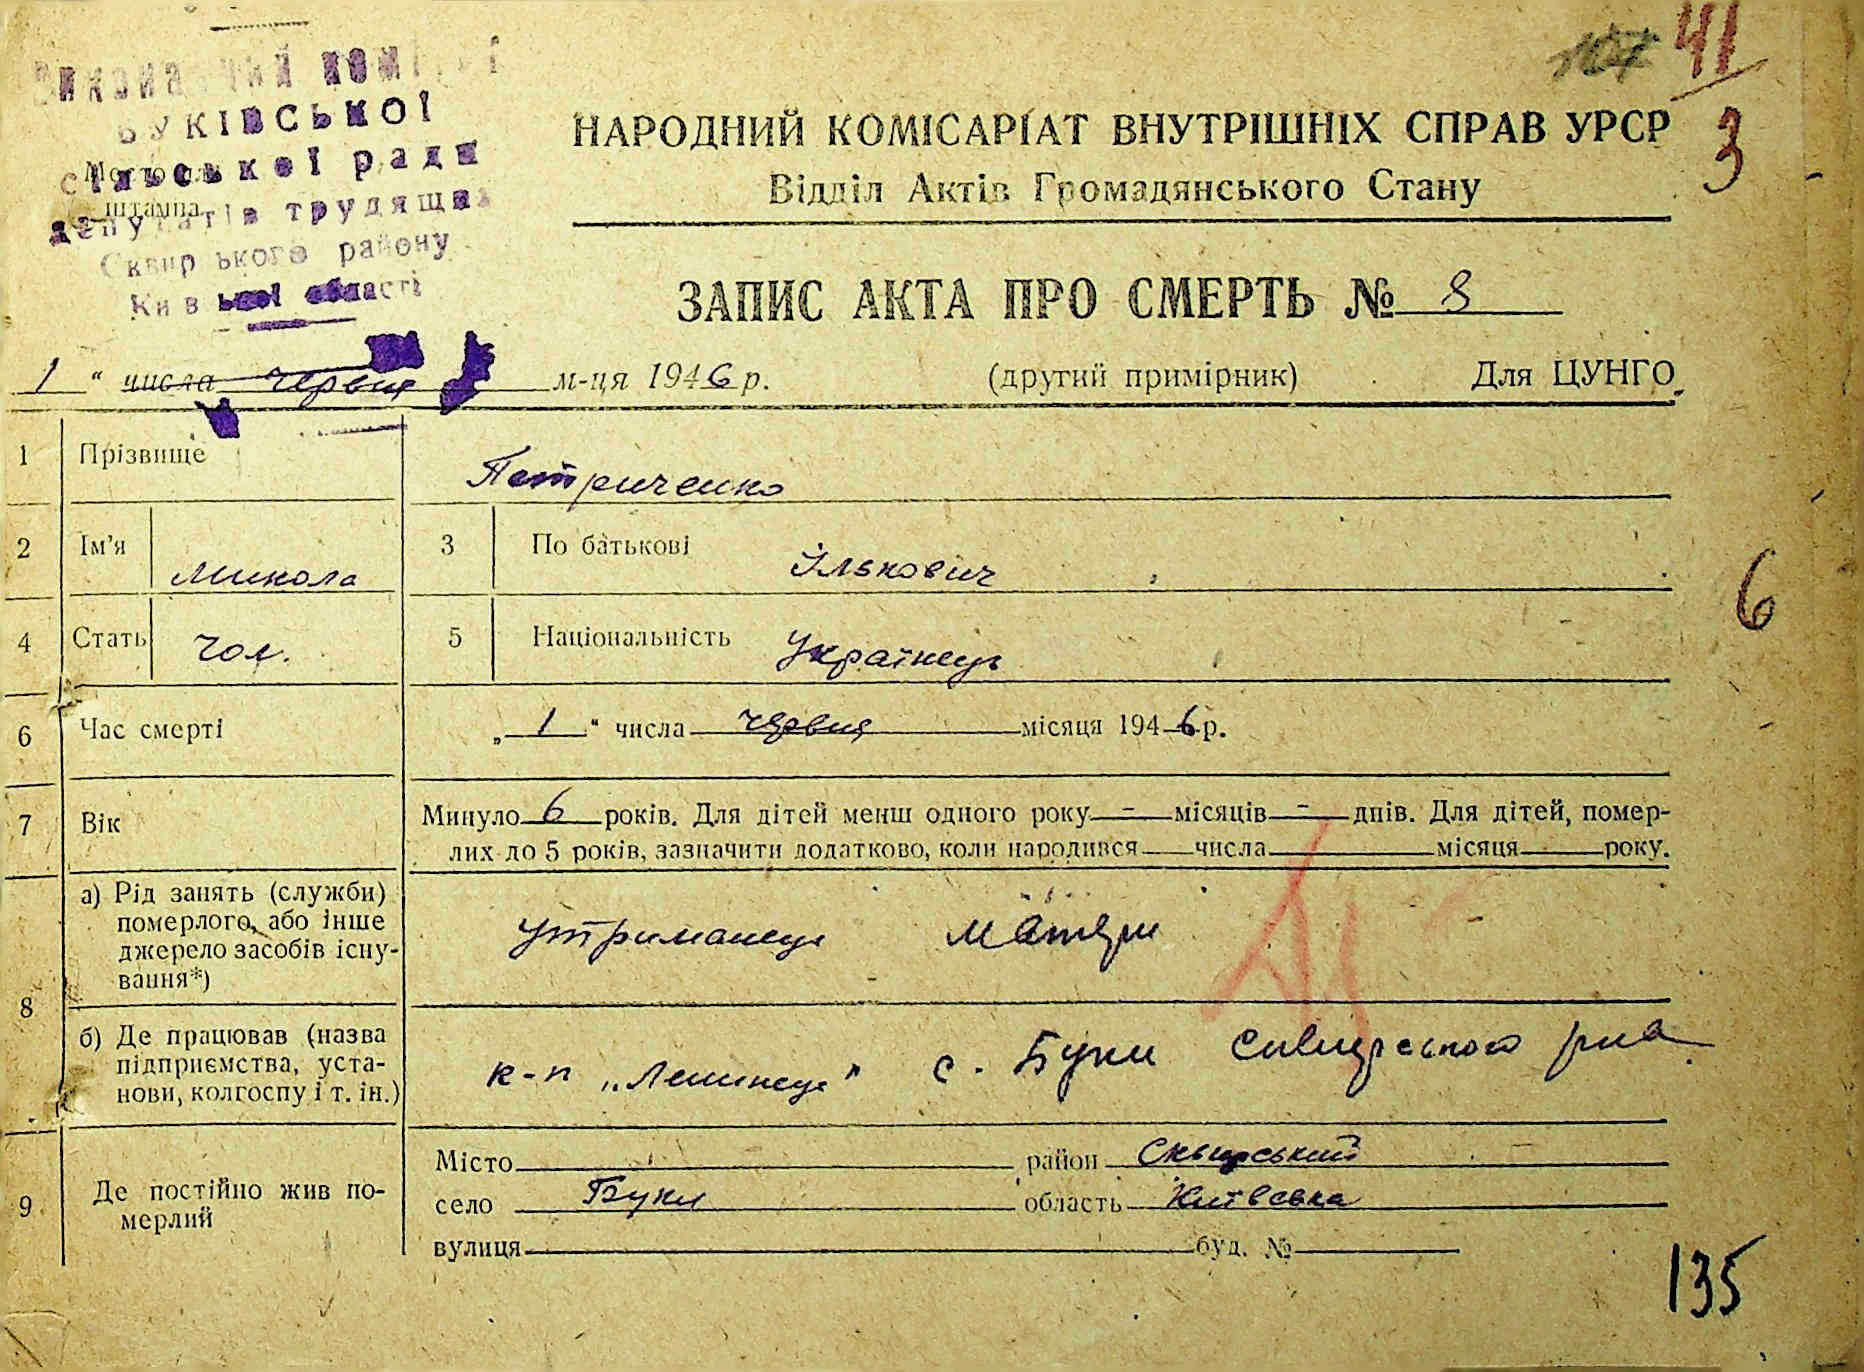 Виконавчий комітет
БУКІВСЬКОЇ
сільської ради
депутатів трудящих
Сквирського району
Київської області
Місце для
штампа
107 41
3
НАРОДНИЙ КОМІСАРІАТ ВНУТРІШНІХ СПРАВ УРСР
Відділ Актів Громадянського Стану
ЗАПИС АКТА ПРО СМЕРТЬ № 8
1 " числа червня м-ця 1946 р. (другий примірник) Для ЦУНГО
1 Прізвище Петриченко
2 Ім'я Микола 3 По батькові Ількович
4 Стать Чол. 5 Національність Українець
6
6 Час смерті „ 1 " числа червня місяця 1946 р.
7 Вік Минуло 6 років. Для дітей менш одного року - місяців - днів. Для дітей, помер-
лих до 5 років, зазначити додатково, коли народився числа місяця року.
8 а) Рід занять (служби)
померлого, або інше
джерело засобів існу-
вання*) утриманець матери
б) Де працював (назва
підприємства, уста-
нови, колгоспу і т. ін.) к-п „Ленинець" с. Буки Сквирського р-на
9 Де постійно жив по-
мерлий
Місто район Сквирський
село Буки область Київська
вулиця буд. №
135